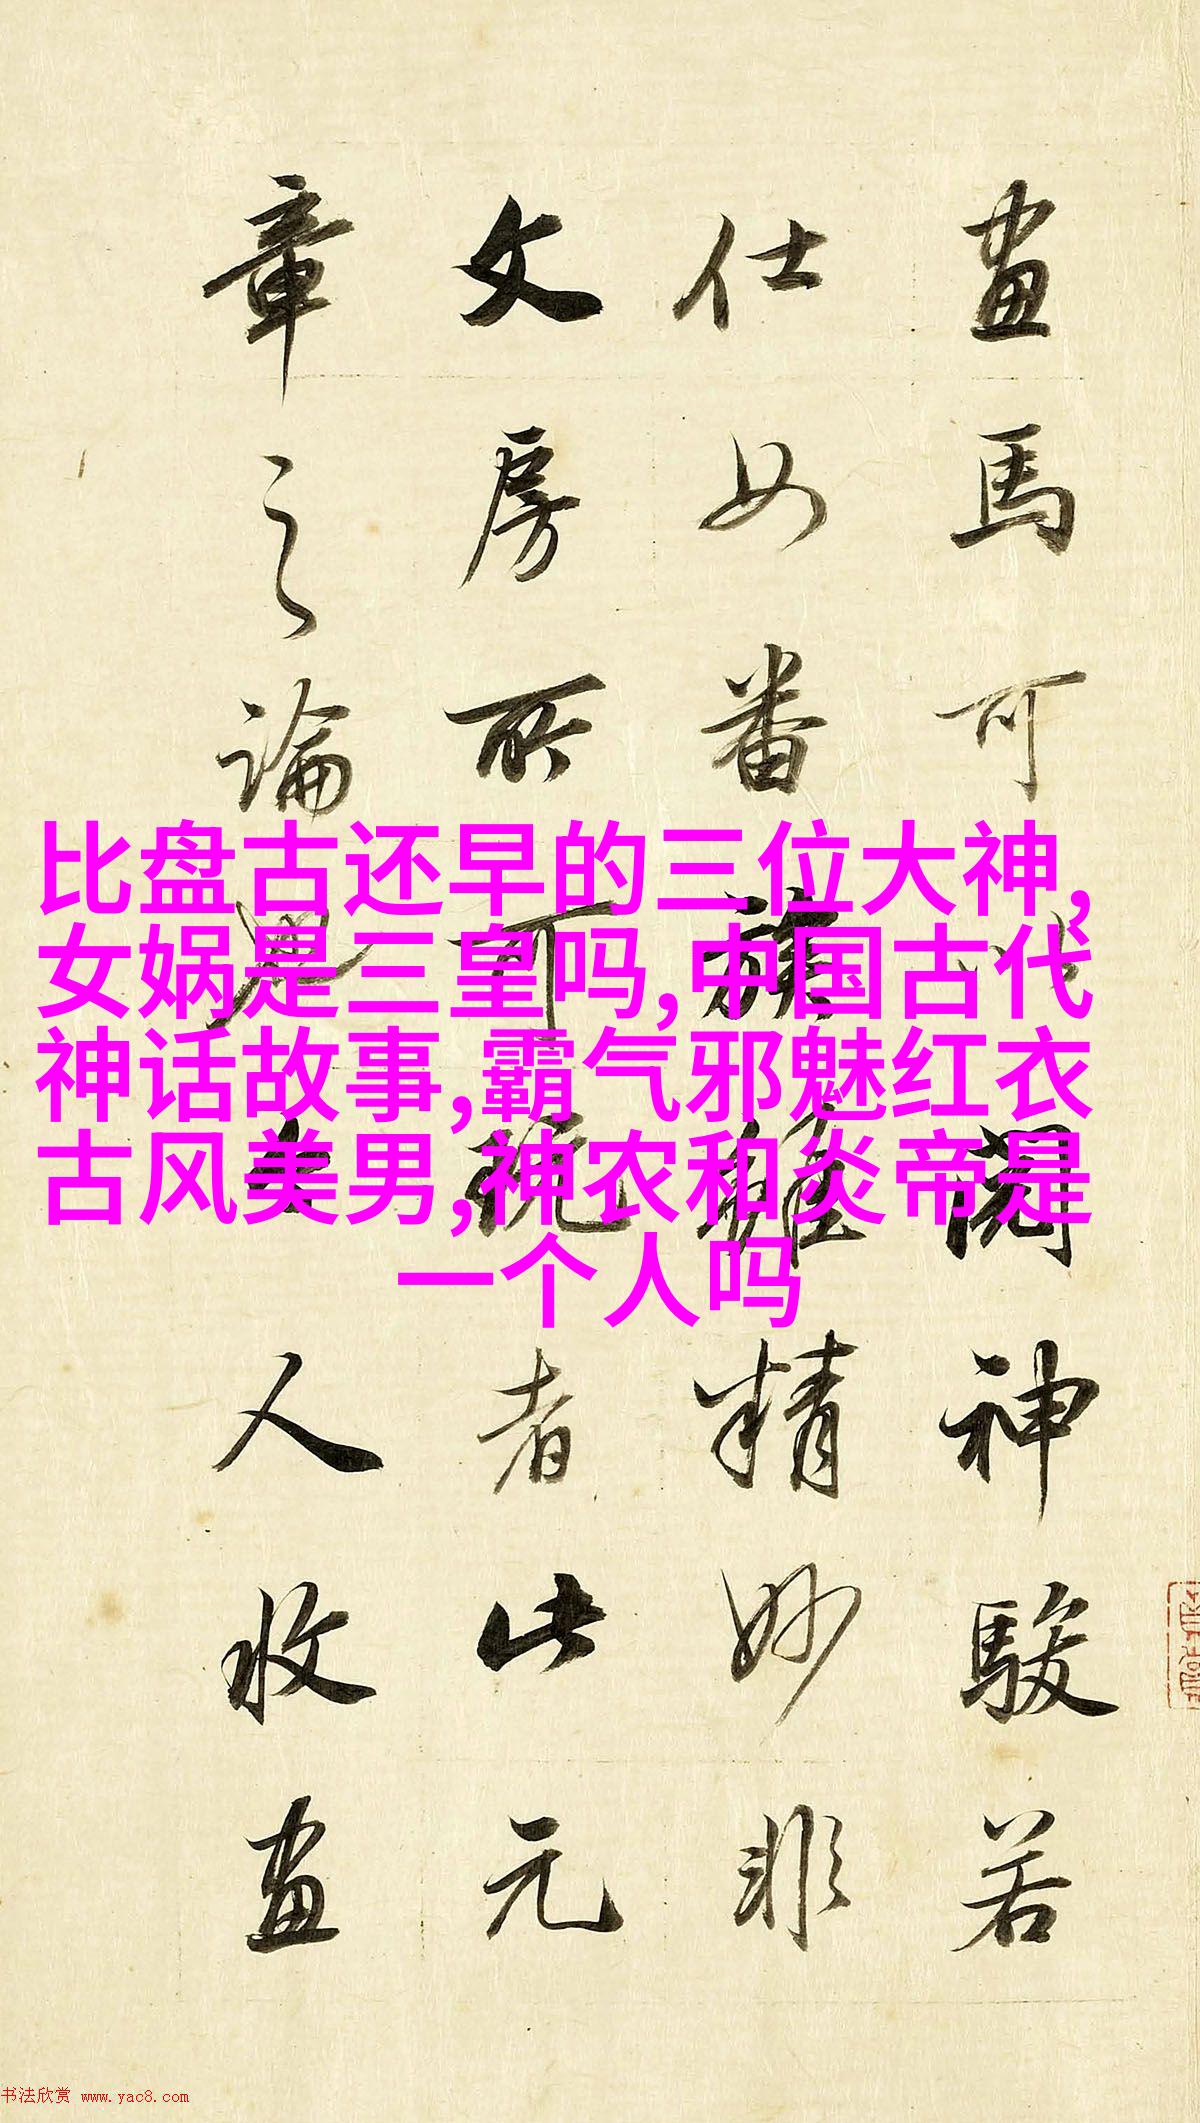 畫馬可以閱神駿若
仕女番族雖精妙非
文房所可玩者此元
章之論也今人收畫
比盘古还早的三位大神,
女娲是三皇吗,中国古代
神话故事,霸气邪魅红衣
古风美男,神农和炎帝是
一个人吗
书法欣赏 www.yac8.com